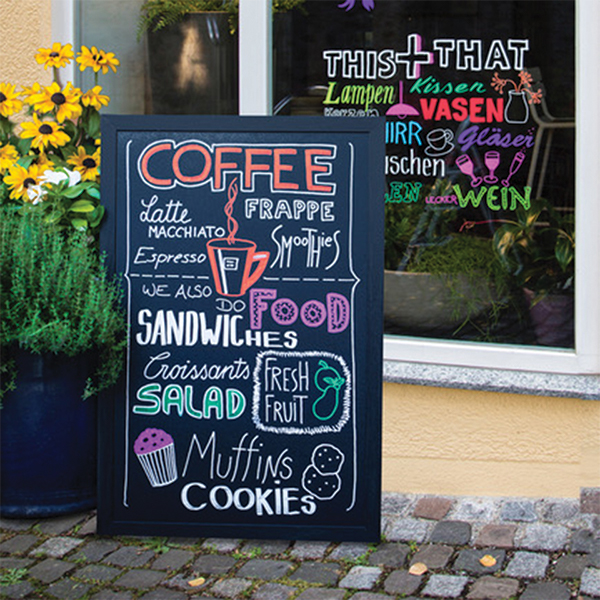 THIS + THAT
Lampen Kissen
Kerzen VASEN
Gläser
WEIN
LECKER
COFFEE
Latte MACCHIATO
FRAPPE
Espresso
SMOOTHIES
WE ALSO DO FOOD
SANDWICHES
Croissants
SALAD
FRESH FRUIT
Muffins
COOKIES